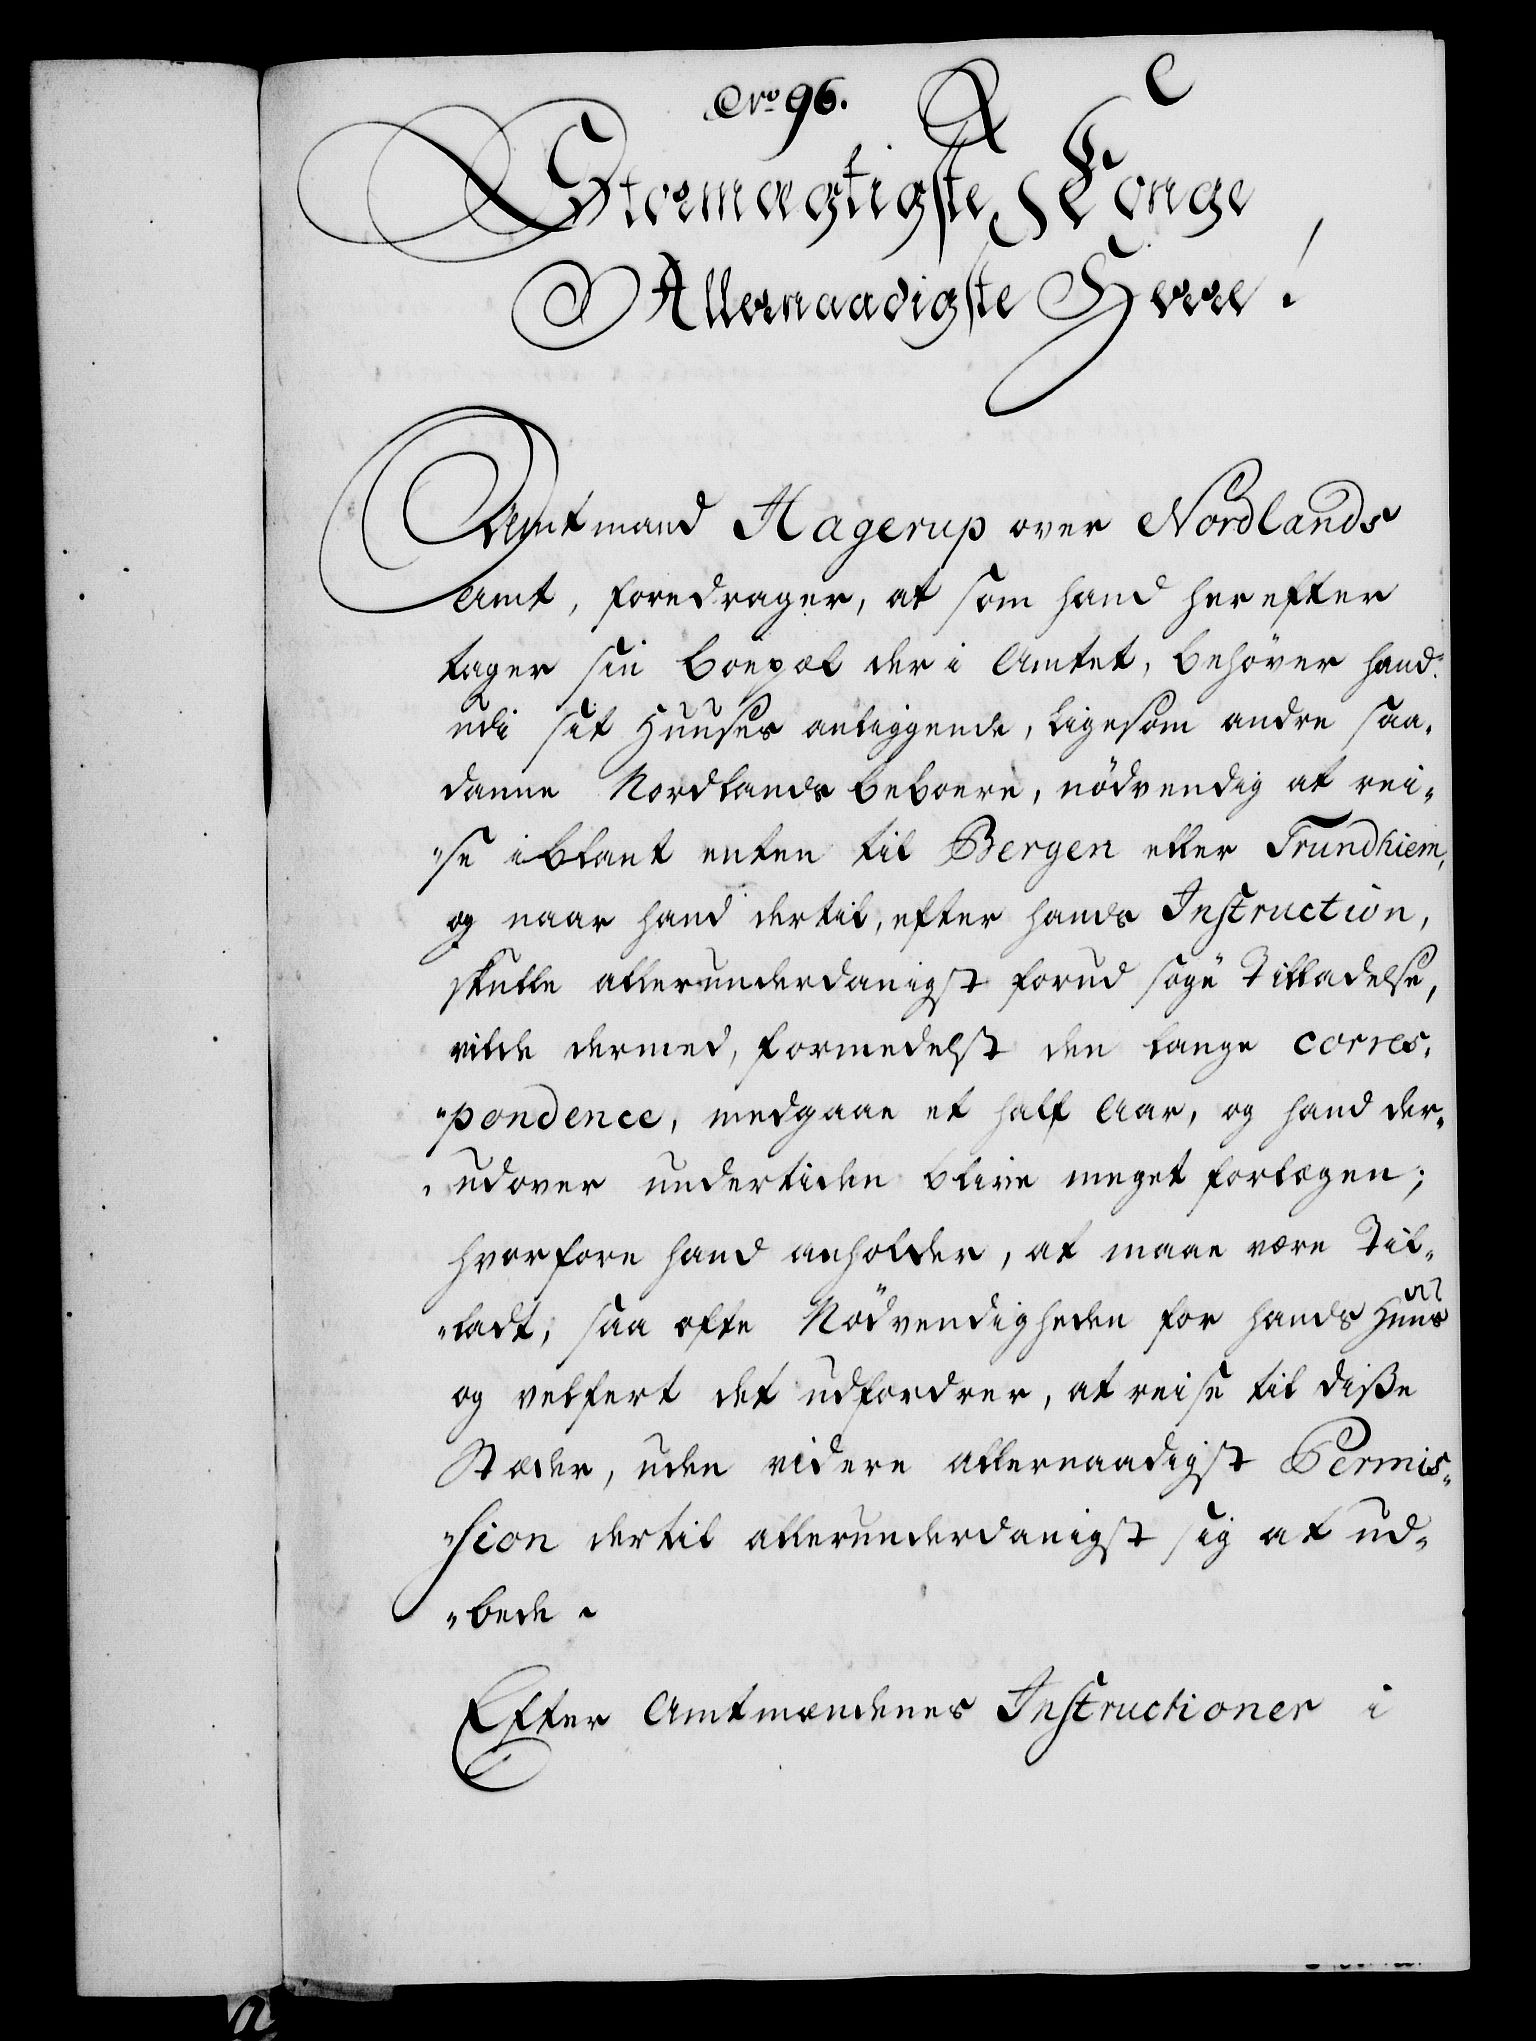 No 96.
Stormægtigste Konge
Allernaadigste Herre!
Amtmand Hagerup over Nordlands
Amt, foredrager, at som hand herefter
tager sin boepæl der i Amtet, behöver hand
udi sit Huuses anliggende, ligesom andre saa-
danne Nordlands beboere, nödvendig at rei-
-se iblant enten til Bergen eller Trundhiem,
og naar hand dertil, efter hands Instruction,
skulle allerunderdanigst forud söge Tilladelse,
vilde dermed, formedelst den lange corres-
-pondence, medgaae et half Aar, og hand der-
-udover undertiden blive meget forlegen;
hvorfore hand anholder, at maae være Til-
-ladt, saa ofte Nödvendigheden for hands Huus
og velfert det udfordrer, at reise til diße
Stæder, uden videre allernaadigst Permis-
-sion dertil allerunderdanigst sig at ud-
-bede.
Efter Amtmændenes Instructioner i